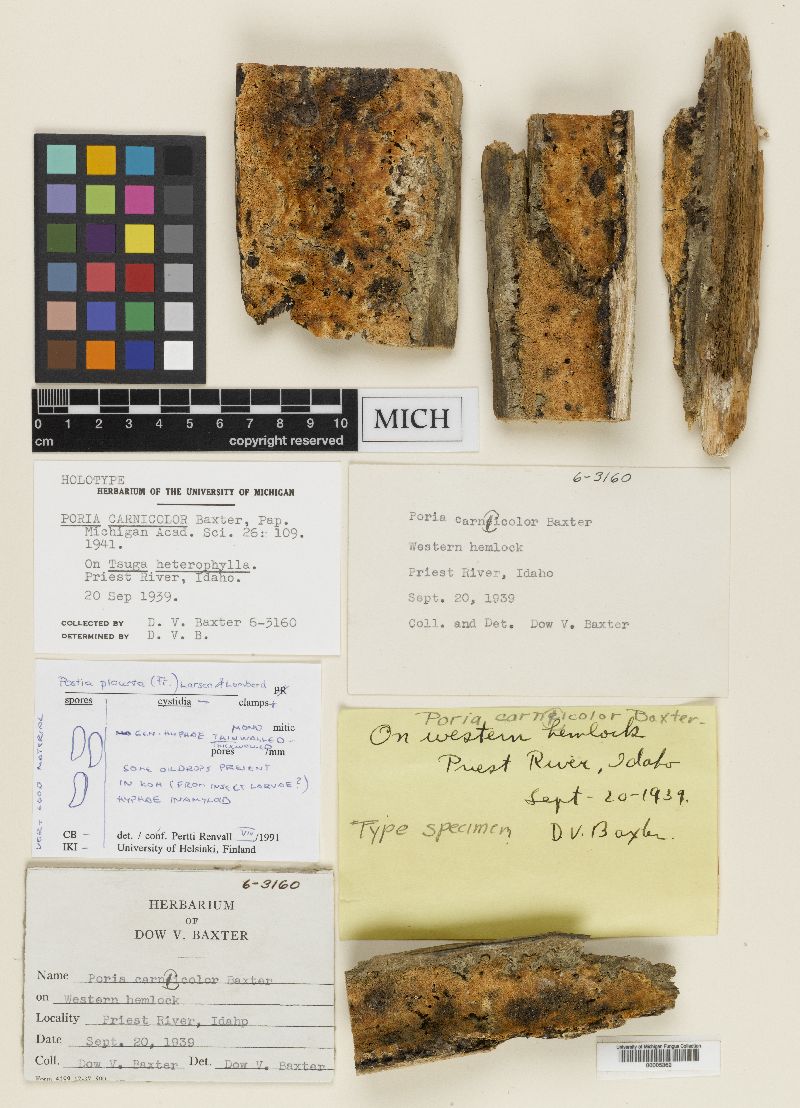 0 1 2 3 4 5 6 7 8 9 10
cm copyright reserved
MICH
HOLOTYPE
HERBARIUM OF THE UNIVERSITY OF MICHIGAN
PORIA CARNICOLOR Baxter, Pap.
Michigan Acad. Sci. 26: 109.
1941.
On Tsuga heterophylla.
Priest River, Idaho.
20 Sep 1939.
COLLECTED BY D. V. Baxter 6-3160
DETERMINED BY D. V. B.
6-3160
Poria carnicolor Baxter
Western hemlock
Priest River, Idaho
Sept. 20, 1939
Coll. and Det. Dow V. Baxter
Postia placenta (Fr.) Larsen & Lombard
spores cystidia – clamps +
MONO mitic
GEN. HYPHAE THINWALLED –
THICKWALLED
pores /mm
SOME OILDROPS PRESENT
IN KOH (FROM INSECT LARVAE?)
HYPHAE INAMYLOID
VERY GOOD MATERIAL
CB –
IKI –
det. / conf. Pertti Renvall VIII/1991
University of Helsinki, Finland
Poria carnicolor Baxter.
On western hemlock
Priest River, Idaho
Sept-20-1939.
Type specimen D.V. Baxter.
6-3160
HERBARIUM
OF
DOW V. BAXTER
Name Poria carnicolor Baxter
on Western hemlock
Locality Priest River, Idaho
Date Sept. 20, 1939
Coll. Dow V. Baxter Det. Dow V. Baxter
University of Michigan Fungus Collection